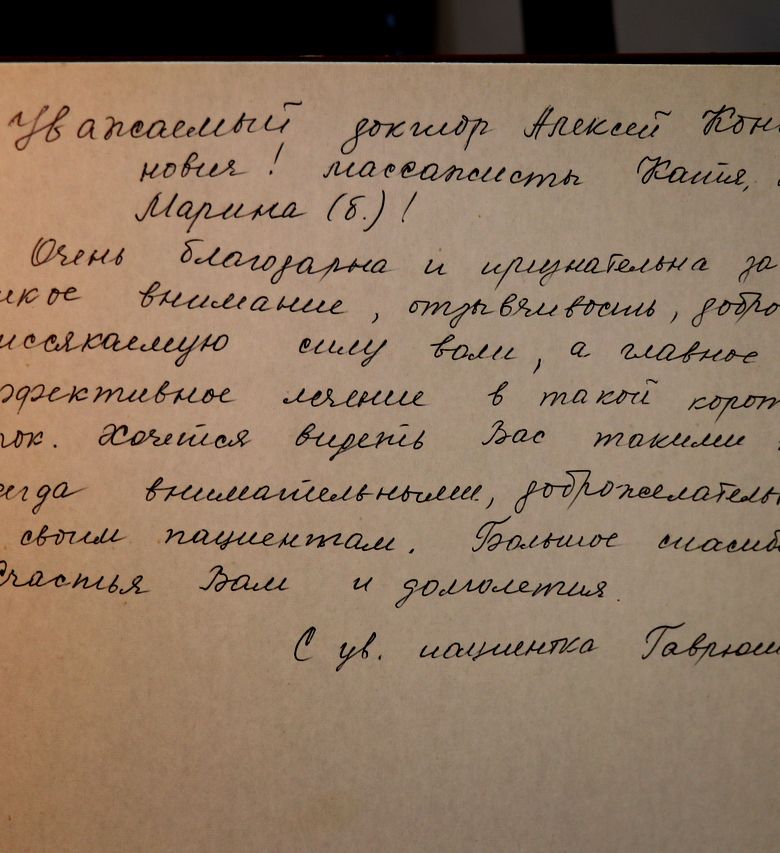 Уважаемый доктор Алексей Кон
нович! массажисты Катя,
Марина (б.)!
Очень благодарна и признательна за
кое внимание, отзывчивость, добро
иссякаемую силу воли, а главное
эффективное лечение в такой корот
рок. Хочется видеть Вас такими
егда внимательными, доброжелатель
своим пациентам. Большое спасиб
Счастья Вам и долголетия.
С ув. пациентка Гаврюш